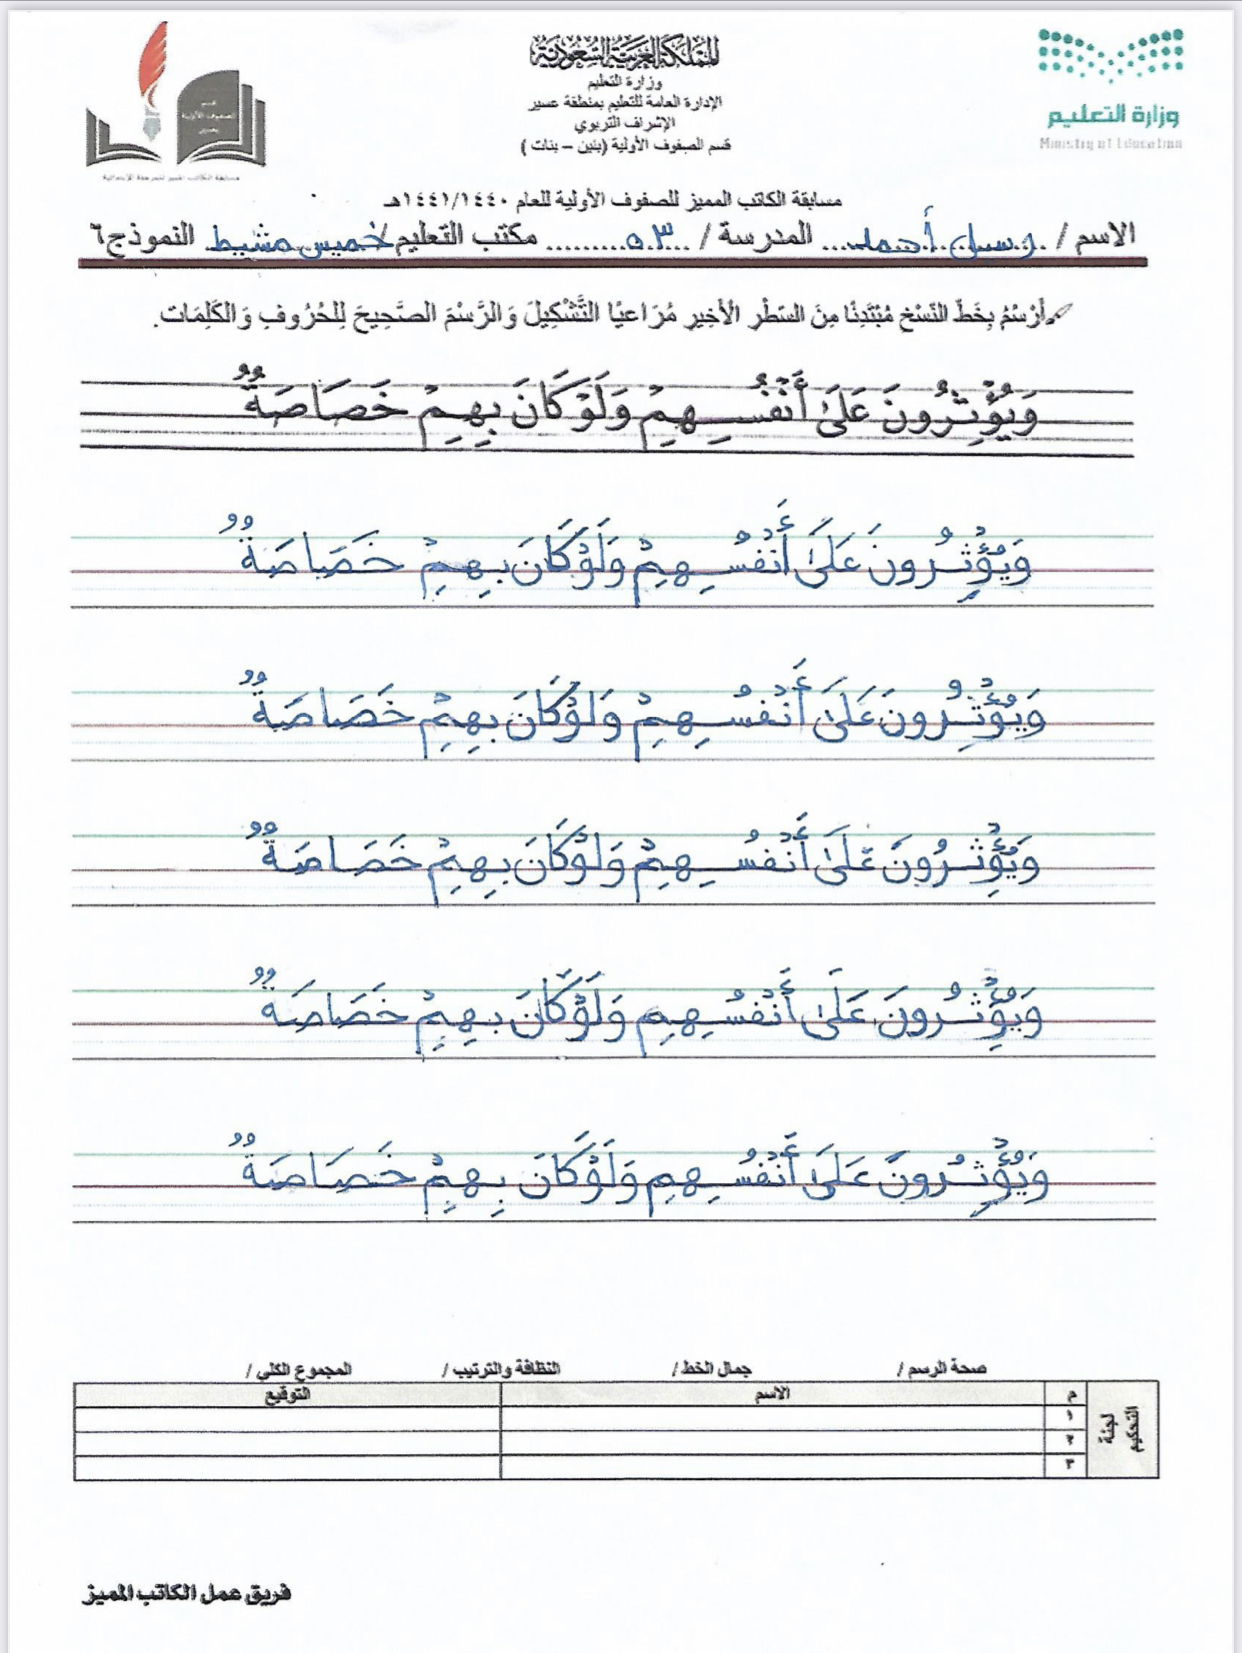 المملكة العربية السعودية
وزارة التعليم
الإدارة العامة للتعليم بمنطقة عسير
الإشراف التربوي
قسم الصفوف الأولية (بنين – بنات )
وزارة التعليم
Ministry of Education
قسم
الصفوف الأولية
بعسير
مسابقة الكاتب المميز للمرحلة الابتدائية
مسابقة الكاتب المميز للصفوف الأولية للعام ١٤٤١/١٤٤٠هـ
الاسم / وسيل أحمد المدرسة / ٥٣ مكتب التعليم / خميس مشيط النموذج ٦
أَرْسُمُ بِخَطِّ النَّسْخِ مُبْتَدِئًا مِنَ السَّطْرِ الأَخِيرِ مُرَاعِيًا التَّشْكِيلَ وَالرَّسْمَ الصَّحِيحَ لِلْحُرُوفِ وَالكَلِمَاتِ.
وَيُؤْثِرُونَ عَلَىٰ أَنْفُسِهِمْ وَلَوْ كَانَ بِهِمْ خَصَاصَةٌ
وَيُؤْثِرُونَ عَلَىٰ أَنْفُسِهِمْ وَلَوْ كَانَ بِهِمْ خَصَاصَةٌ
وَيُؤْثِرُونَ عَلَىٰ أَنْفُسِهِمْ وَلَوْ كَانَ بِهِمْ خَصَاصَةٌ
وَيُؤْثِرُونَ عَلَىٰ أَنْفُسِهِمْ وَلَوْ كَانَ بِهِمْ خَصَاصَةٌ
وَيُؤْثِرُونَ عَلَىٰ أَنْفُسِهِمْ وَلَوْ كَانَ بِهِمْ خَصَاصَةٌ
وَيُؤْثِرُونَ عَلَىٰ أَنْفُسِهِمْ وَلَوْ كَانَ بِهِمْ خَصَاصَةٌ
صحة الرسم / جمال الخط / النظافة والترتيب / المجموع الكلي /
لجنة التحكيم م الاسم التوقيع
١
٢
٣
فريق عمل الكاتب المميز